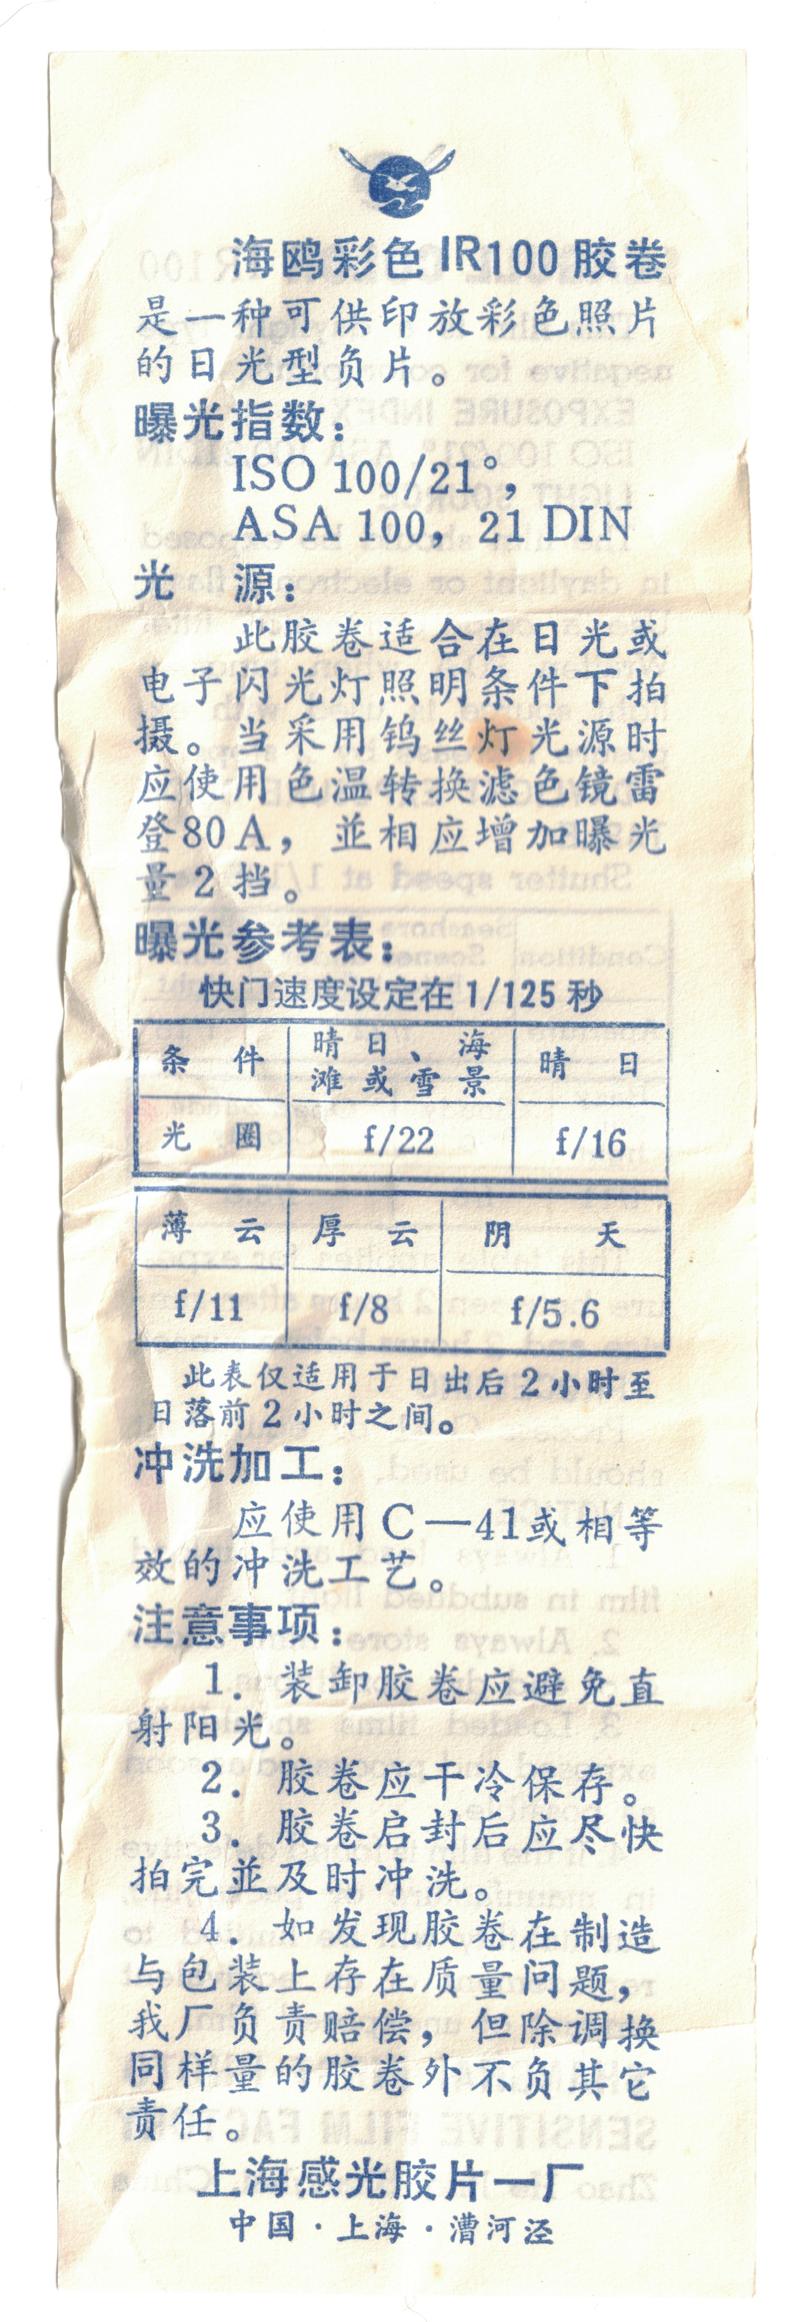 海鸥彩色IR100胶卷
是一种可供印放彩色照片
的日光型负片。
曝光指数：
ISO 100/21°，
ASA 100，21 DIN
光　源：
此胶卷适合在日光或
电子闪光灯照明条件下拍
摄。当采用钨丝灯光源时
应使用色温转换滤色镜雷
登80A，並相应增加曝光
量2挡。
曝光参考表：
快门速度设定在1/125秒
条件 晴日、海滩或雪景 晴日
光圈 f/22 f/16
薄云 厚云 阴天
f/11 f/8 f/5.6
此表仅适用于日出后2小时至
日落前2小时之间。
冲洗加工：
应使用C—41或相等
效的冲洗工艺。
注意事项：
1．装卸胶卷应避免直
射阳光。
2．胶卷应干冷保存。
3．胶卷启封后应尽快
拍完並及时冲洗。
4．如发现胶卷在制造
与包装上存在质量问题，
我厂负责赔偿，但除调换
同样量的胶卷外不负其它
责任。
上海感光胶片一厂
中国·上海·漕河泾